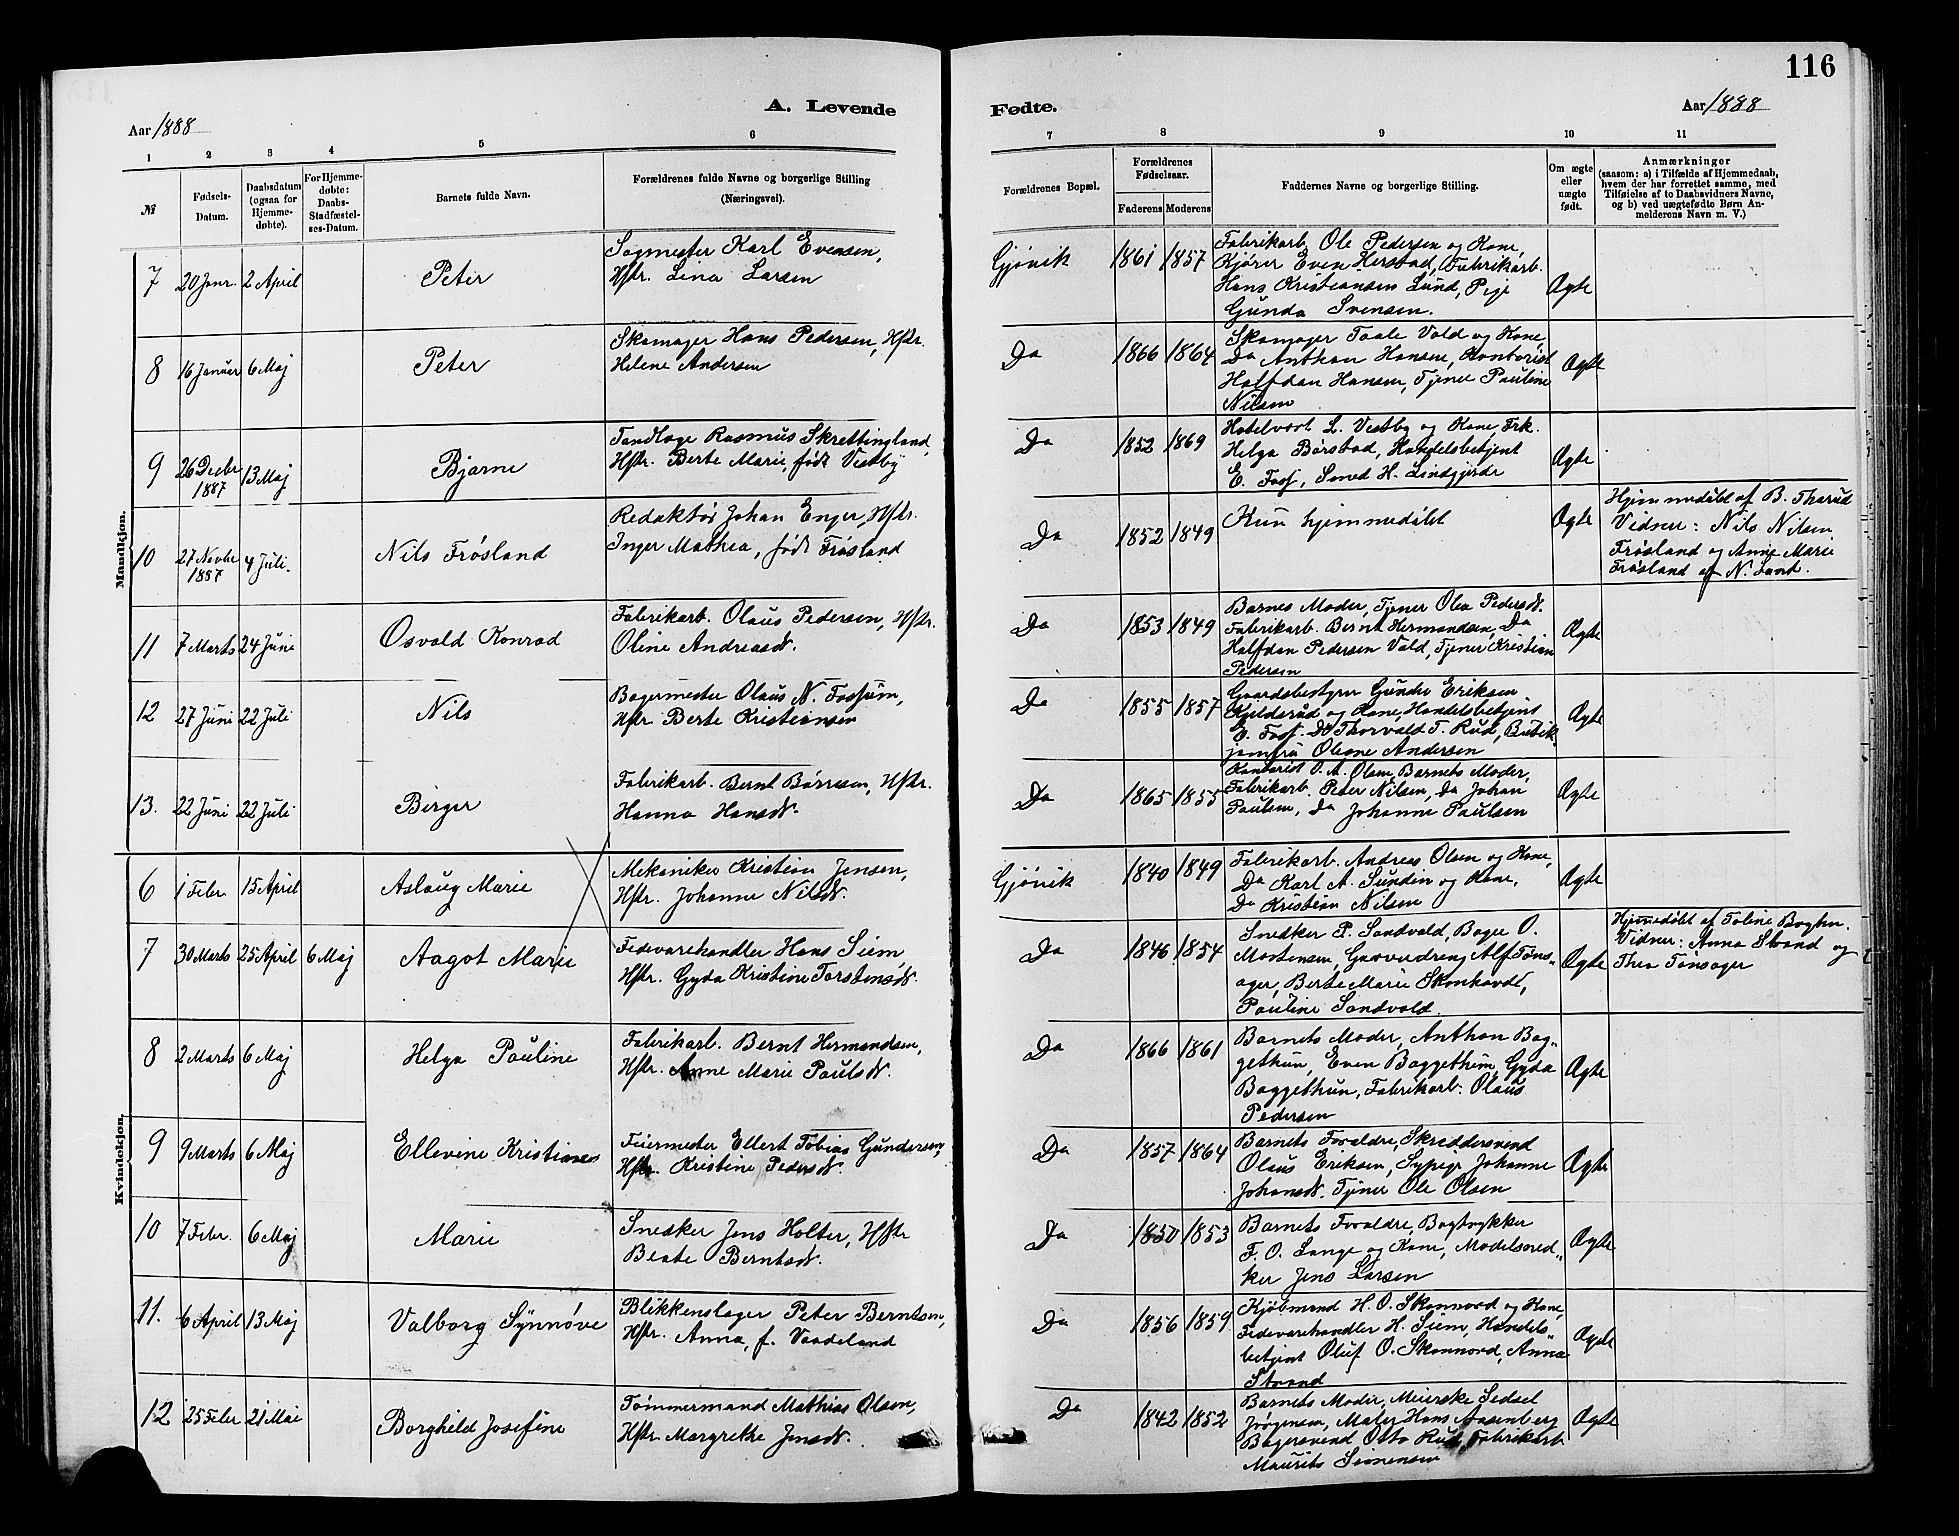 116
A. Levende
Fødte.
Aar 1888
Aar 1888
1 2 3 4 5 6 7 8 9 10 11
№
Fødsels-
Datum.
Daabsdatum
(ogsaa for
Hjemme-
døbte).
For Hjemme-
døbte:
Daabs-
Stadfæstel-
ses-Datum.
Barnets fulde Navn.
Forældrenes fulde Navne og borgerlige Stilling
(Næringsvei).
Forældrenes Bopæl.
Forældrenes
Fødselsaar.
Faderens Moderens
Faddernes Navne og borgerlige Stilling.
Om ægte
eller
uægte
født.
Anmærkninger
(saasom: a) i Tilfælde af Hjemmedaab,
hvem der har forrettet samme, med
Tilføielse af to Daabsvidners Navne,
og b) ved uægtefødte Børn An-
melderens Navn m. V.)
Mandkjøn.
7 20 Janr. 2 April Peter
Sagmester Karl Evensen,
Hstr. Lina Larsen
Gjøvik 1861 1857
Fabrikarb. Ole Pedersen og Kone,
Kjører Even Herstad, Fabrikarb.
Hans Kristiansen Lund, Pige
Gunda Svensen.
Ægte
8 16 Januer 6 Maj Peter
Skomager Hans Pedersen, Hstr.
Helene Andersen
Da 1866 1864
Skomager Taale Vold og Kone,
Da Anthon Hansen, Kontorist
Halfdan Hansen, Tjener Pauline
Nilsen
Ægte
9 26 Decbr 1887 13 Maj Bjarne
Tandlæge Rasmus Skrettingland,
Hstr. Berte Marie, født Vestby
Da 1852 1869
Hotelvært L. Vestby og Kone, Frk.
Helga Børstad, Handelsbetjent
E. Foss, Smed H. Lindgjerde
Ægte
10 27 Novbr 1887 4 Juli. Nils Frøsland
Redaktør Johan Enger, Hstr.
Inger Mathea, født Frøsland
Da 1852 1849
Kun hjemmedøbt
Ægte
Hjemmedøbt af B. Tharud
Vidner: Nils Nilsen
Frøsland og Anne Marie
Frøsland af N. Land.
11 7 Marts 24 Juni Osvald Konrad
Fabrikarb. Olaus Pedersen, Hstr.
Oline Andreasdt.
Da 1853 1849
Barnes Moder, Tjener Olea Pedersdt.
Fabrikarb. Bernt Hermandsen, Da
Halfdan Pedersen Vald, Tjener Kristian
Pedersen
Ægte
12 27 Juni 22 Juli Nils
Bagermester Olaus N. Fossum,
Hstr. Berte Kristiansen
Da 1855 1857
Gaardsbestyrer Gunder Eriksen
Kjelderud og Kone, Handelsbetjent
E. Foss. Do Thorvald T. Rud, Butik-
jomfru Oleane Andersen
Ægte
13. 22 Juni 22 Juli Birger
Fabrikarb. Bernt Børresen, Hstr.
Hanna Hansdt.
Da 1865 1855
Kontorist O. A. Olsen, Barnets Moder,
Fabrikarb. Peter Nilsen, Da Johan
Paulsen, Da Johanne Paulsen
Ægte
Kvindekjøn.
6 1 Febr. 15 April Aslaug Marie
Mekaniker Kristian Jensen,
Hstr. Johanne Nilsdt.
Gjøvik 1840 1849
Fabrikarb. Andreas Olsen og Kone,
Da Karl A. Sundin og Kone,
Da Kristian Nilsen
Ægte
7 30 Marts 25 April 6 Maj Aagot Marie
Fedevarehandler Hans Siem
Hstr. Gyda Kristine Torstensdt.
Da 1846 1854
Snedker P. Sandvold, Bager O.
Mortensen, Garversvend Alf Tøns-
ager, Berte Marie Skonhovdt,
Pauline Sandvold.
Ægte
Hjemmedøbt af Toline Bagken.
Vidner: Anna Strand og
Thea Tønsager
8 2 Marts 6 Maj Helga Pauline
Fabrikarb. Bernt Hermandsen,
Hstr. Anne Marie Paulsdt.
Da 1866 1861
Barnets Moder, Anthon Bag-
gethun, Even Baggethun, Gyda
Baggethun, Fabrikarb. Olaus
Pedersen
Ægte
9 9 Marts 6 Maj Ellevine Kristiane
Feiermester Ellert Tobias Gundersen,
Hstr. Kristine Pedersdt.
Da 1857 1864
Barnets Forældre, Skreddersvend
Olaus Eriksen, Sypige Johanne
Johansdt. Tjener Ole Olsen
Ægte
10 7 Febr. 6 Maj Marie
Snedker Jens Holter, Hstr
Beate Berntsdt.
Da 1850 1853
Barnets Forældre, Bogtrykker
F. O. Lange og Kone, Modelsned-
ker Jens Larsen
Ægte
11. 6 April 13 Maj Valborg Synnøve
Blikkenslager Peter Berntsen,
Hstr. Anna, f. Vaadeland
Da 1856 1859
Kjøbmand H. O. Skonnord og Kone,
Fedevarehandler H. Siem, Handels-
betjent Oluf O. Skonnord, Anna
Strand
Ægte
12 25 Febr 21 Mai Borghild Josefine
Tømmermand Mathias Olsen,
Hstr. Margrethe Jensdt.
Da 1842 1852
Barnets Moder, Meierske Sedsel
Jørgensen, Maler Hans Aasenberg
Bagersvend Otto Rud, Fabrikarb
Maurits Simensen
Ægte